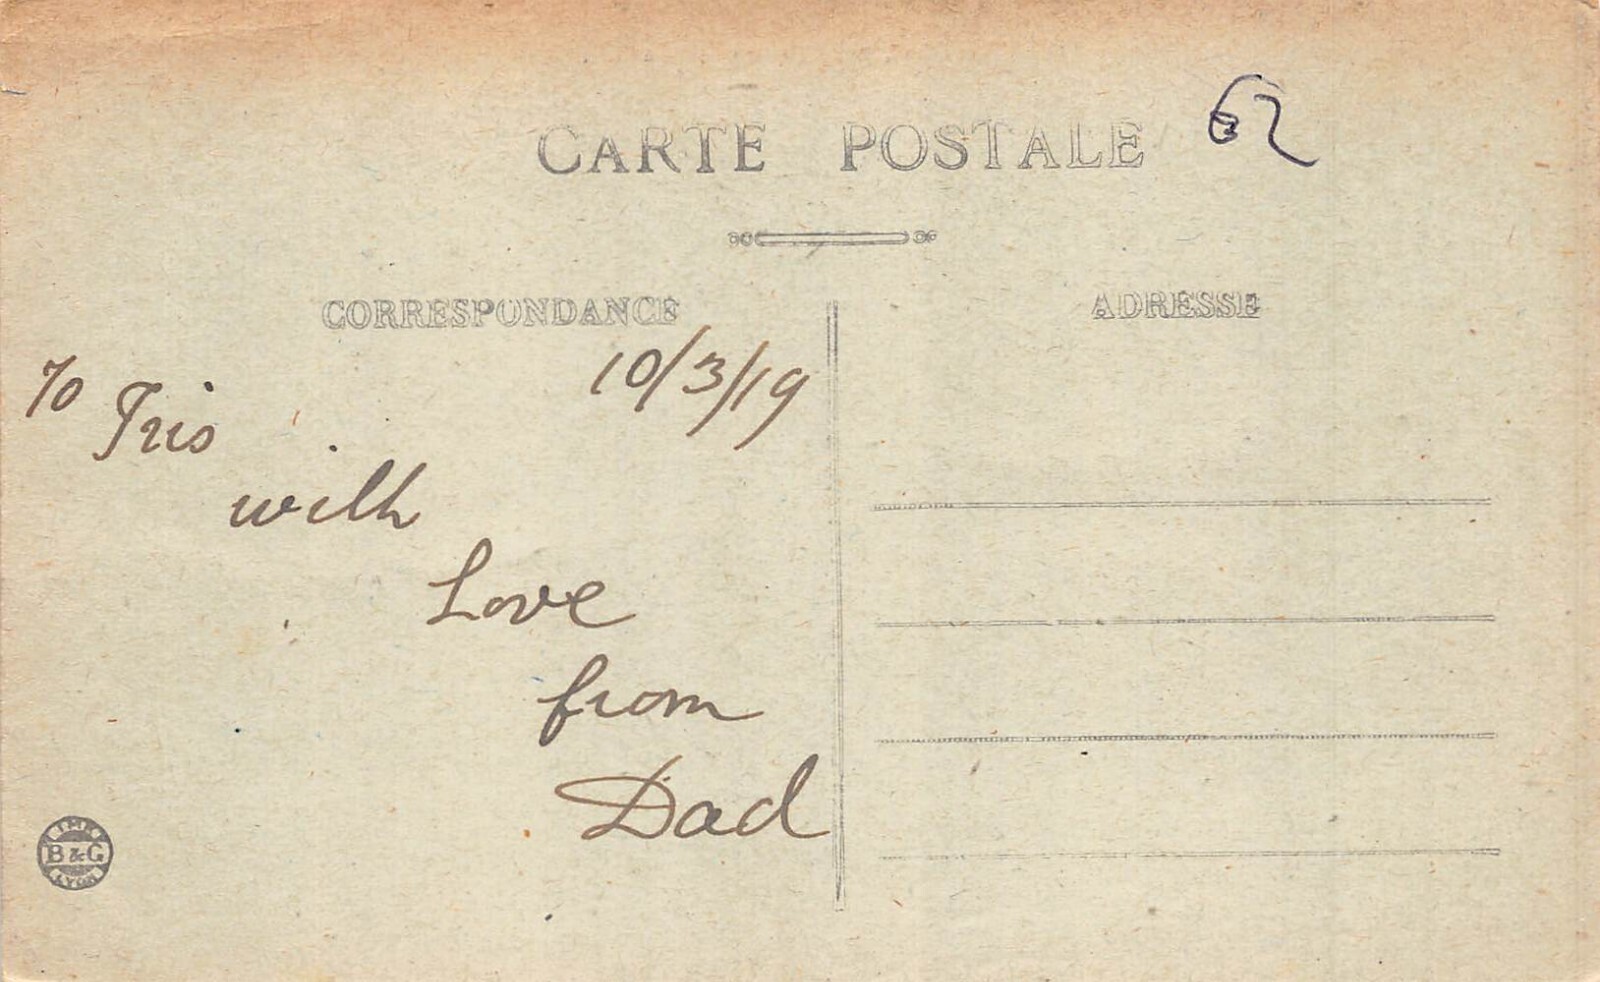 CARTE POSTALE
62
CORRESPONDANCE
ADRESSE
10/3/19
To Iris
with
Love
from
Dad
IMP.
B & G
LYON